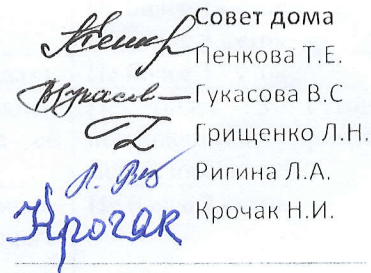 Совет дома
Пенкова Т.Е.
Гукасова В.С
Грищенко Л.Н.
Ригина Л.А.
Крочак Крочак Н.И.